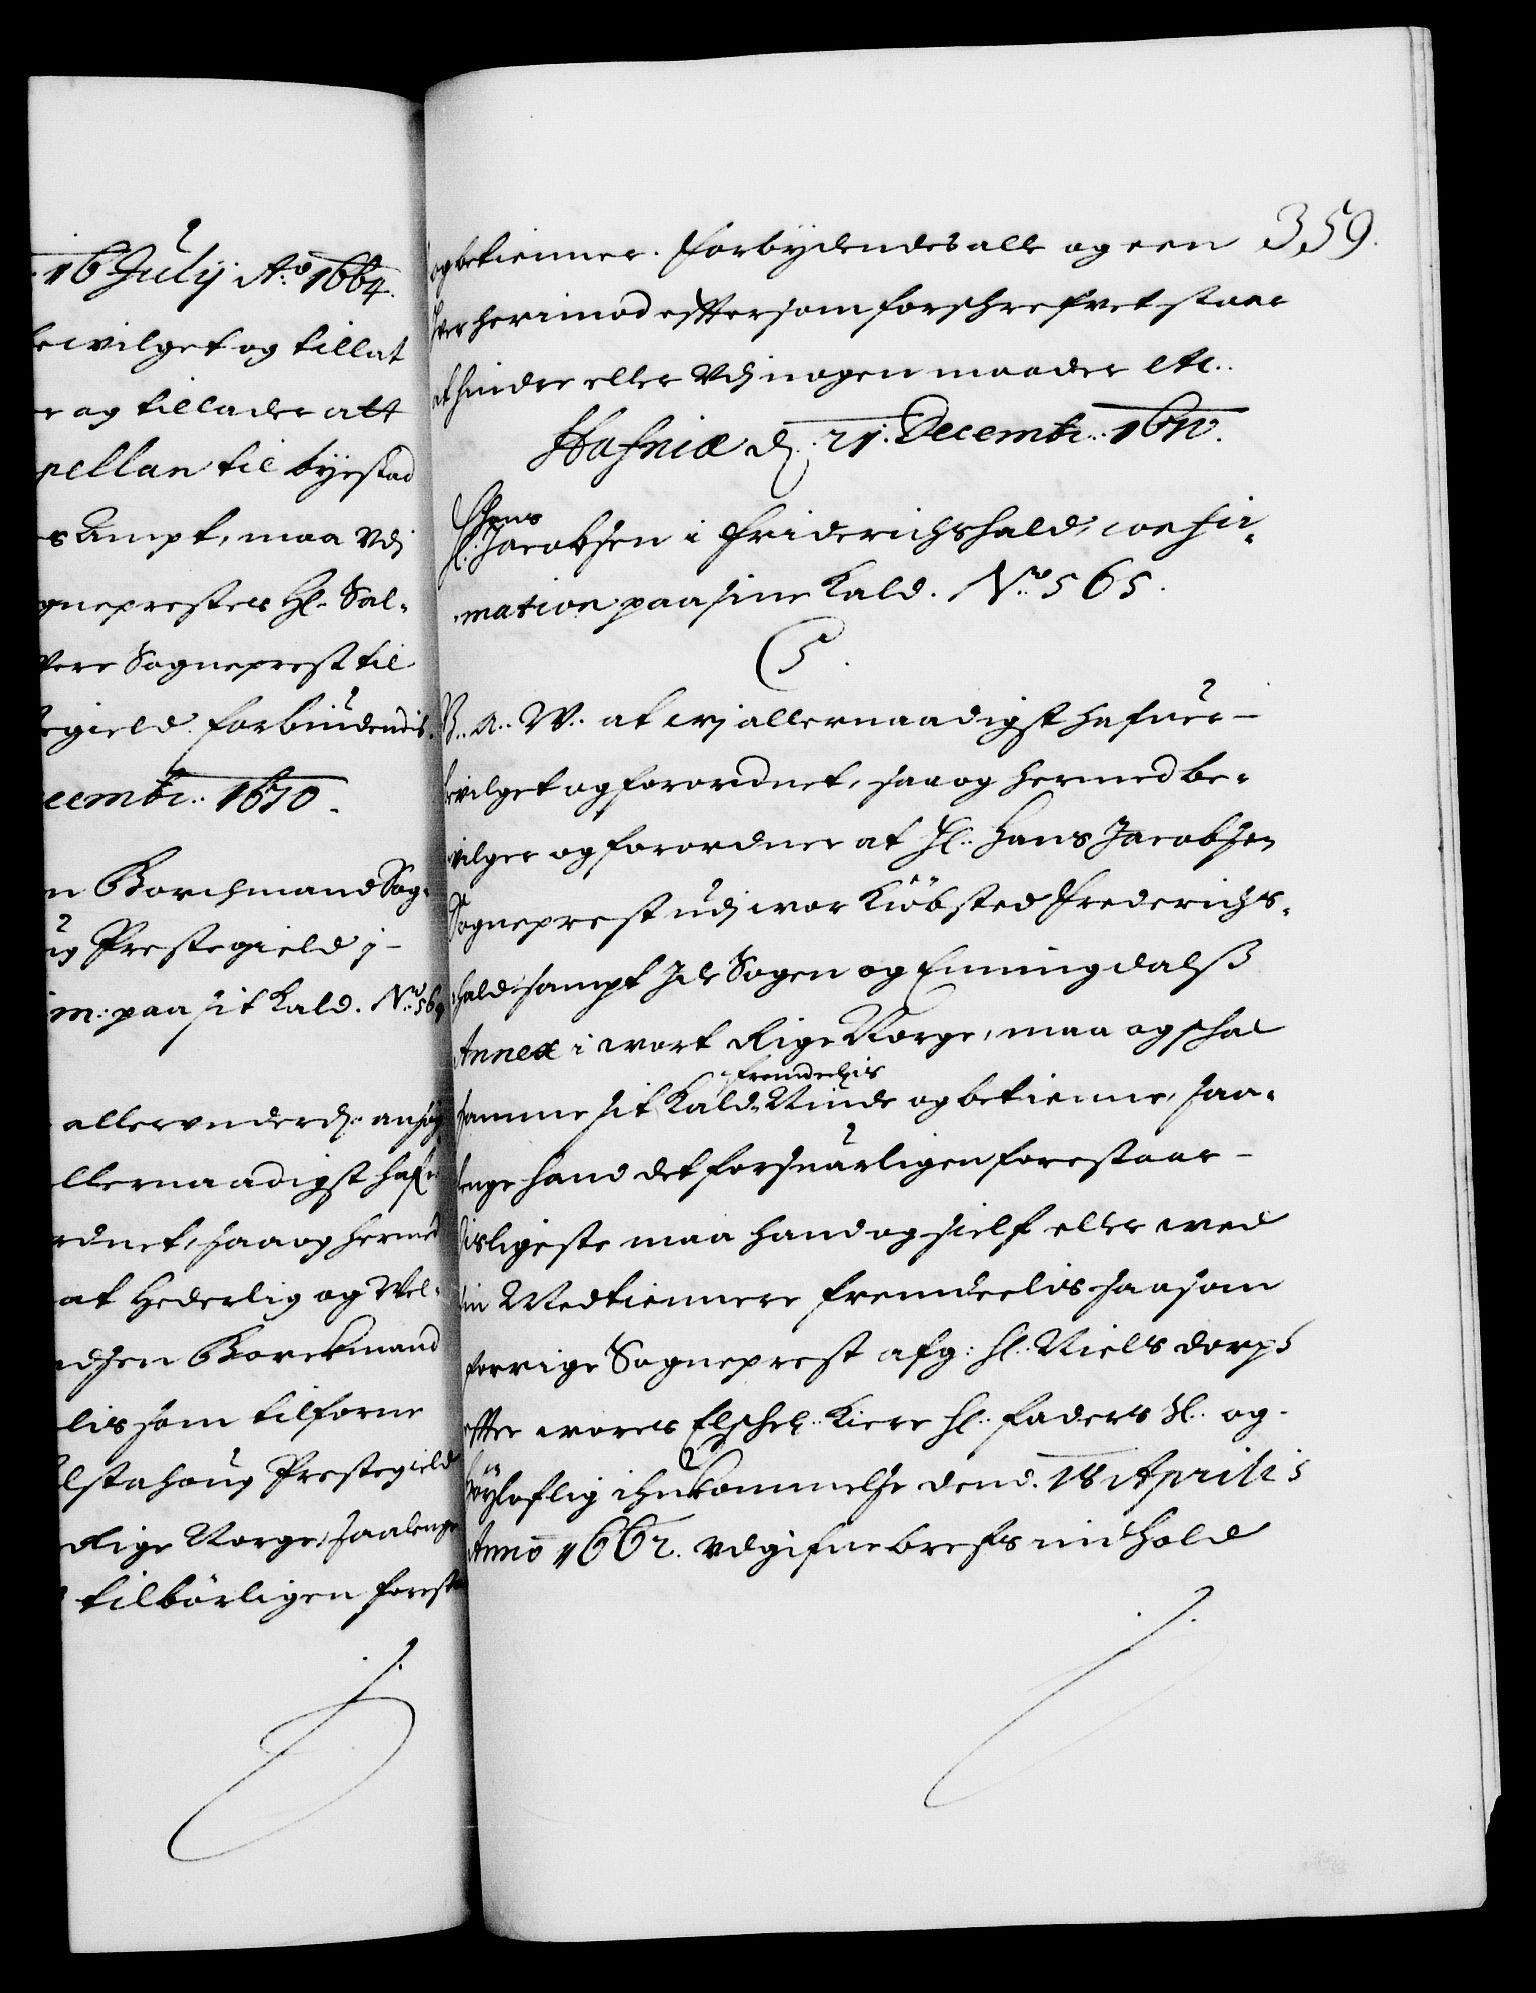 16 Julij Ao 1664.
bewilget og tillat
er og tillader att
pellan til byestad
s Ampt, maa vdj
gneprestes Hl. Sal-
vere Sogneprest til
egield. forbiudendis.
ecembr. 1670.
n Borchmand Sog-
ug Prestegield j-
m: paa sit Kald. No 564
allervnderd. ansøg
llernaadigst hafr
rdnet, saa og hermed
at Hederlig og Vel-
dsen Borckmand
lis som tilforne
lstahoug Prestegield
Rige Norge, saalenge
tilbörligen forest
359.
og betienner. forbydendes alle og een
hver herimod efftersom forschrefvet staar
at hindre eller vdj nogen maader etc.
Hafniæ d. 21. Decembr. 1670.
Hans
Hl. Jacobsen i Friderichshald, confir-
mation paa sine Kald. No 565.
C 5.
V. A. W. at wj allernaadigst hafuer-
bevilget og forordnet, saa og hermed be-
vilger og forordner at Hl. Hans Jacobsen
Sogneprest udj wor Kiöbsted Frederichs-
hald sampt Ide Sogen og Enningdalß
Annex i wort Rige Norge, maa og schal
fremdeelis
samme sit Kald Niude og betienne, saa-
lenge hand det forsuarligen forestaar-
disligeste maa hand og sielf eller med
sin Medtiennere fremdeelis saasom
forrige Sogneprest afg: Hl. Niels Dorphs
effter wores Elschel. Kiere Hl. faders Hl. og-
höyloflig ihukommelse dend. 18 Aprilis
Anno 1662. vdgifne brefs indhold